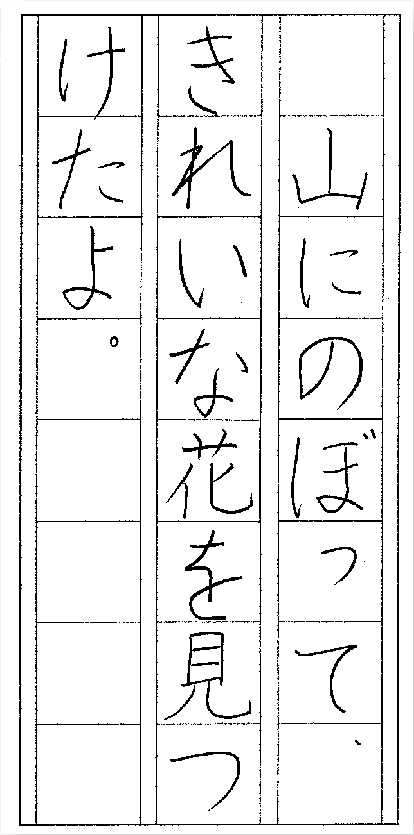 山にのぼって、
きれいな花を見つ
けたよ。